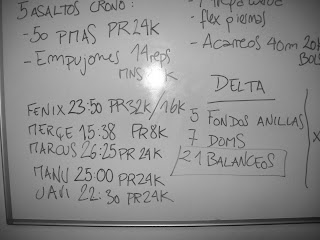 5 ASALTOS CRONO:
-.50 PMAS PR24K
- EMPUJONES 14 reps
MNS K
FENIX 23:50 PR32K/16K
MERGE 15:38 PR8K
MARCUS 26:25 PR24K
MANU 25:00 PR24K
JAVI 22:30 PR24K
- flex piernas
- Acarreos 40m 20k
BOLS
DELTA
5 FONDOS ANILLAS
7 DOMS
21 BALANCEOS